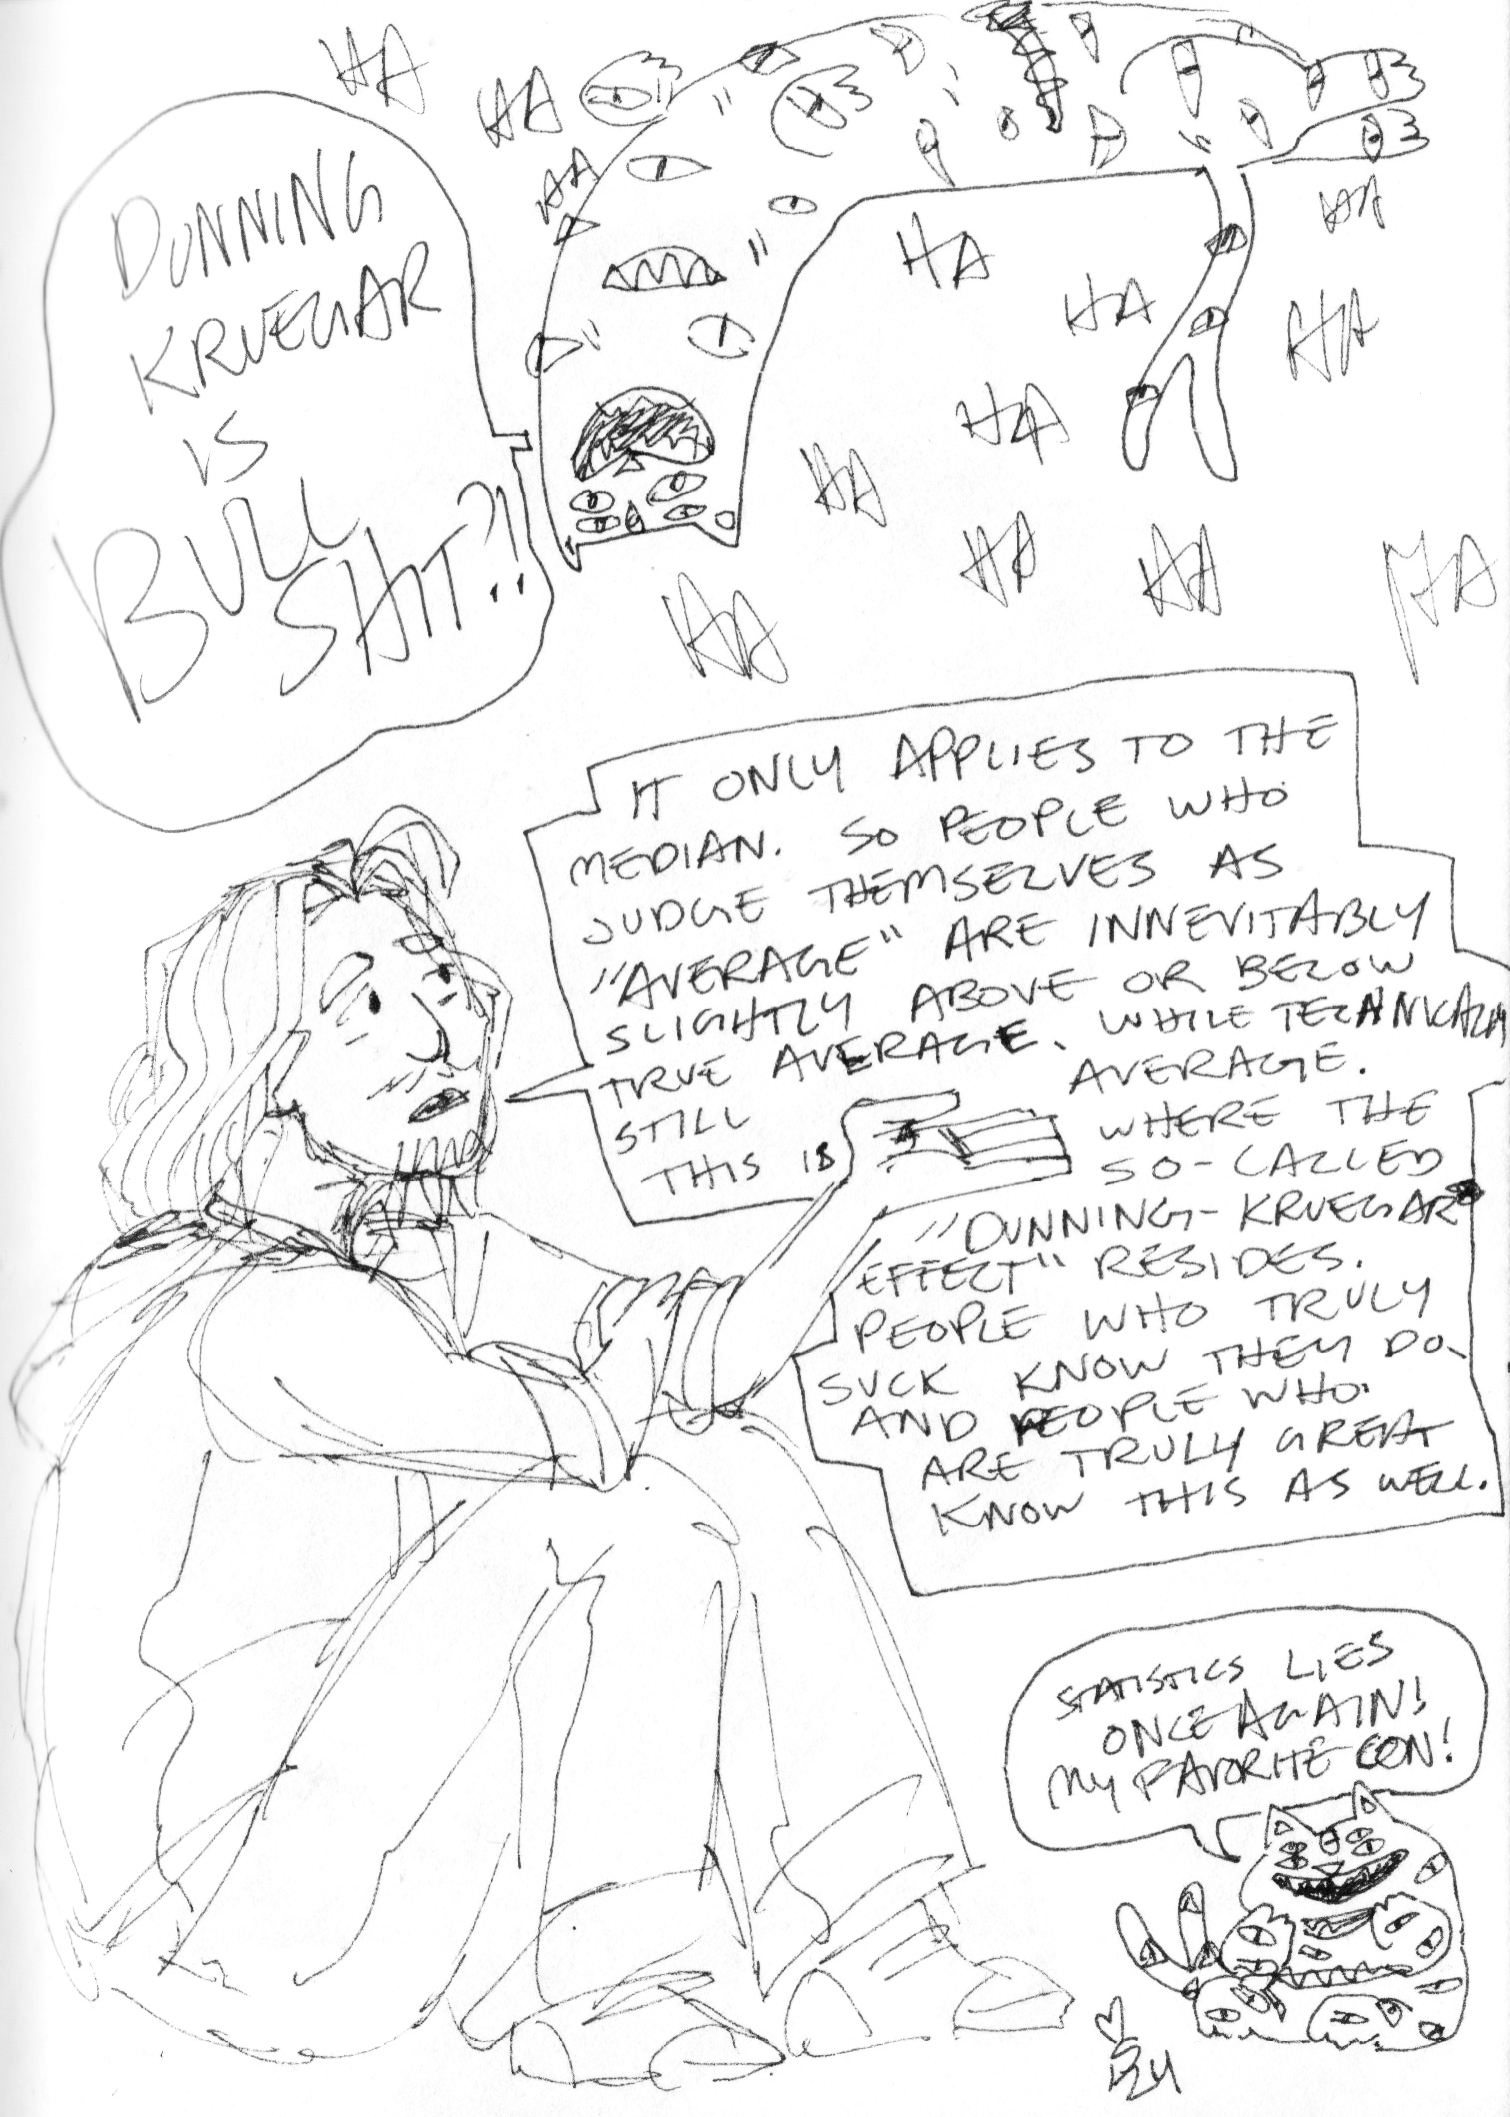 HA
HA
HA
DUNNING
KRUEGAR
IS
BULL
SHIT?!
HA
HA
HA
HA
HA
HA
HA
HA
HA
HA
IT ONLY APPLIES TO THE
MEDIAN. SO PEOPLE WHO
JUDGE THEMSELVES AS
"AVERAGE" ARE INNEVITABLY
SLIGHTLY ABOVE OR BELOW
TRUE AVERAGE. WHILE TECHNICALLY
STILL AVERAGE.
THIS IS WHERE THE
SO-CALLED
"DUNNING-KRUEGAR
EFFECT" RESIDES.
PEOPLE WHO TRULY
SUCK KNOW THEY DO.
AND PEOPLE WHO
ARE TRULY GREAT
KNOW THIS AS WELL.
STATISTICS LIES
ONCE AGAIN!
MY FAVORITE CON!